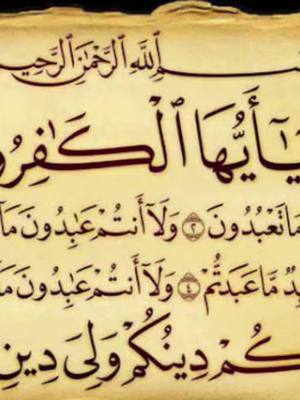 سْمِ ٱللَّهِ ٱلرَّحْمَٰنِ ٱلرَّحِيمِ
يَٰٓأَيُّهَا ٱلْكَٰفِرُو
مَا تَعْبُدُونَ ٢ وَلَآ أَنتُمْ عَٰبِدُونَ مَآ
دٌ مَّا عَبَدتُّمْ ٤ وَلَآ أَنتُمْ عَٰبِدُونَ مَآ
كُمْ دِينُكُمْ وَلِىَ دِينِ